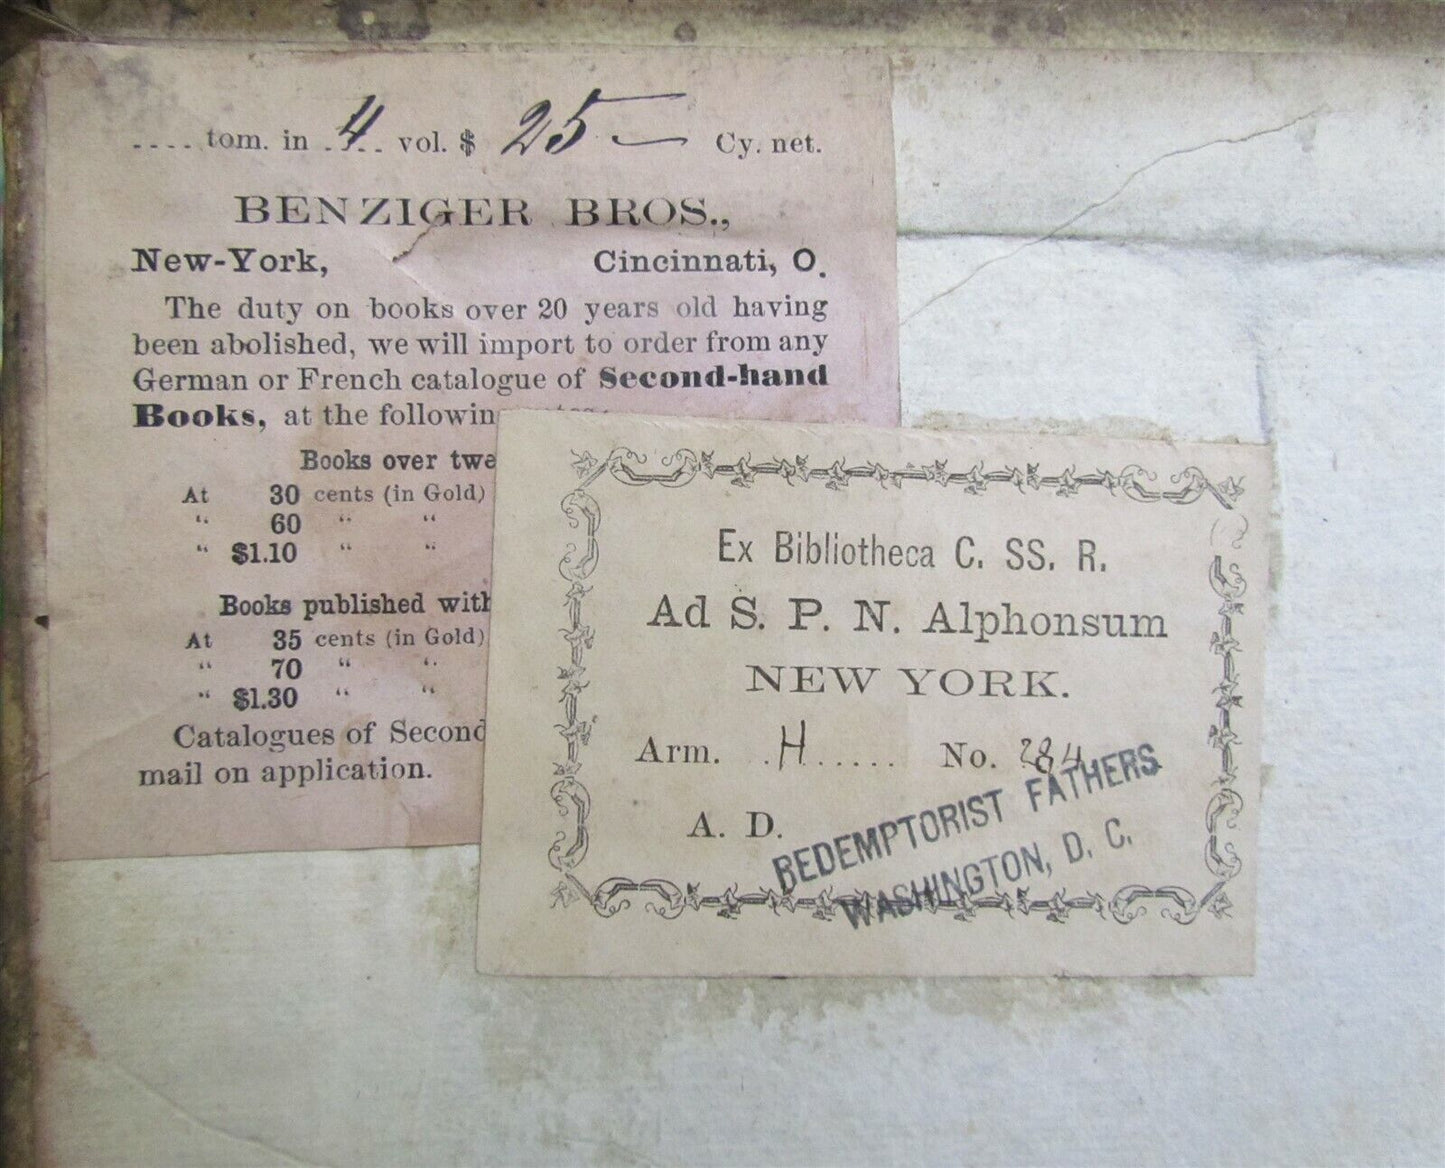 .... tom. in .4.. vol. $ 25 — Cy. net.
BENZIGER BROS.,
New-York, Cincinnati, O.
The duty on books over 20 years old having
been abolished, we will import to order from any
German or French catalogue of Second-hand
Books, at the followin
Books over twe
At 30 cents (in Gold)
“ 60 “ “
“ $1.10 “ “
Books published with
At 35 cents (in Gold)
“ 70 “ “
“ $1.30 “ “
Catalogues of Second
mail on application.
Ex Bibliotheca C. SS. R.
Ad S. P. N. Alphonsum
NEW YORK.
Arm. .H..... No. 284
A. D.
REDEMPTORIST FATHERS
WASHINGTON, D. C.